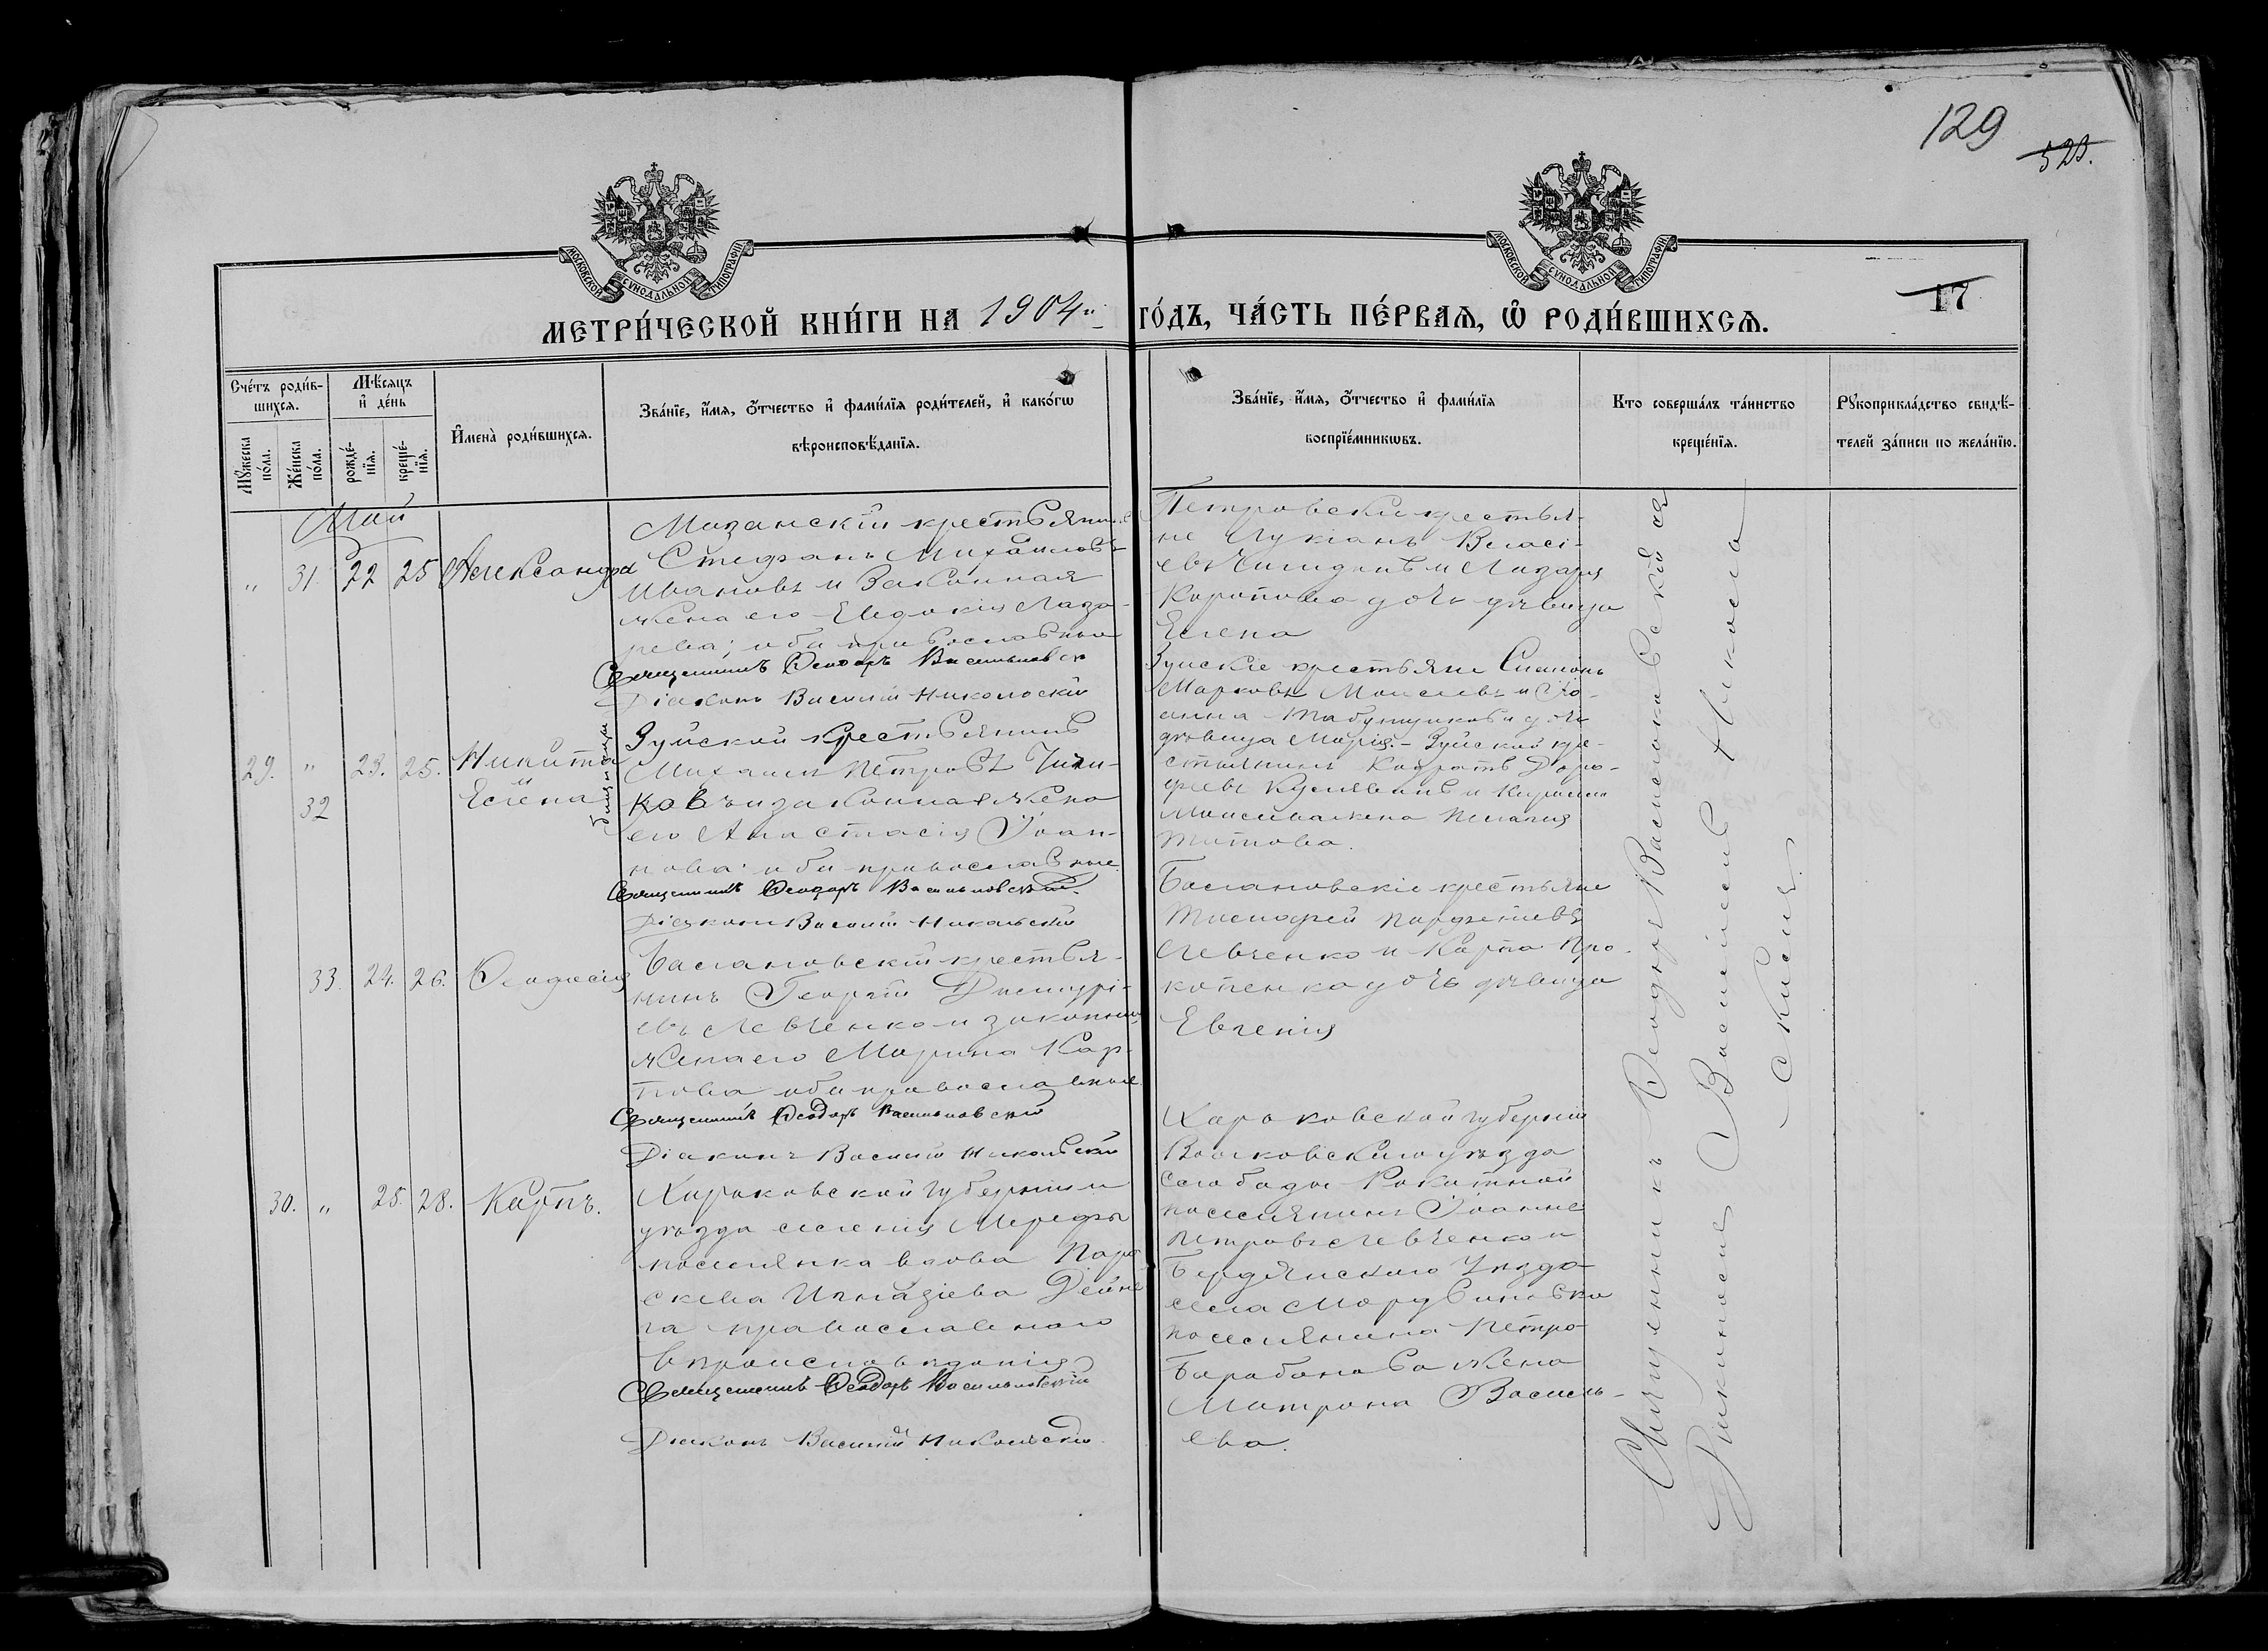 129
523.
МОСКОВСКОЙ СѴНОДАЛЬНОЙ ТИПОГРАФІИ
МОСКОВСКОЙ СѴНОДАЛЬНОЙ ТИПОГРАФІИ
17
МЕТРИ́ЧЕСКОЙ КНИ́ГИ НА 1904й
ГО́ДЪ, ЧА́СТЬ ПЕ́РВАѦ, Ѽ РОДИ́ВШИХСѦ.
Сче́тъ роди́в-
шихсѧ.
Мꙋ́жеска по́ла.
Же́нска по́ла.
Мѣ́сѧцъ
и҆ де́нь
рожде́-
нїѧ.
креще́-
нїѧ.
И҆мена̀ роди́вшихсѧ.
Зва́нїе, и҆́мѧ, ѻ҆́тчество и҆ фами́лїѧ роди́телей, и҆ како́гѡ
вѣроисповѣ́данїѧ.
Зва́нїе, и҆́мѧ, ѻ҆́тчество и҆ фами́лїѧ
воспрїе́мникѡвъ.
Кто соверша́лъ та́инство
креще́нїѧ.
Рꙋкоприкла́дство свидѣ́-
телей за́писи по жела́нїю.
Май
" 31. 22 25 Александра
Мазанскій крестьянинъ
Стефанъ Михаиловъ
Ивановъ и законная
жена его Евдокія Лаза-
рева; оба православные
Священникъ Ѳеодоръ Васильковск
Діаконъ Василій Никольскій
Петровскіе крестья-
не Лукіанъ Власі-
евъ и Лазаря
Коротова дочь дѣвица
Елена
29. " 23. 25. Никита
32 Елена
близнецы
Зуйской крестьянинъ
Михаилъ Петровъ Чили-
ковъ и законная жена
его Анастасія Іоан-
нова: оба православные
Священникъ Ѳеодоръ Васильковскій.
Діаконъ Василій Никольскій
Зуйскіе крестьяне Симеонъ
Марковъ Моисеевъ и Іо-
анна Табунщикова дочь
дѣвица Марія. – Зуйской кре-
стьянинъ Кодратъ Доро-
феевъ и
Моисеева жена Пелагія
Титова.
33. 24. 26. Ѳеодосія
Баслановскій крестья-
нинъ Георгій Димитрі-
евъ Левченко и законная
жена его Марина Кар-
пова оба православные
Священникъ Ѳеодоръ Васильковскій
Діаконъ Василій Никольскій
Баслановскіе крестьяне
Тимофей Парфеніевъ
Левченко и Карпа Про-
копенка дочь дѣвица
Евгенія
30. " 25. 28. Карпъ.
Харьковской губерніи и
уѣзда селенія Мерефы
поселянка вдова Пара
скева Игнатіева Дейне
га православнаго
вѣроисповѣданія
Священникъ Ѳеодоръ Васильковскій
Діаконъ Василій Никольскій
Харьковской губерніи
Волчковскаго уѣзда
слободы Рокитной
поселянинъ Іоаннъ
Петровъ Левченко и
Бердянскаго уѣзда
села Мордвиновки
поселянина Петра
Барабанова жена
Матрона Василь-
ева.
Священникъ Ѳеодоръ Васильковскій съ
Діакономъ Василіемъ Николь-
скимъ.